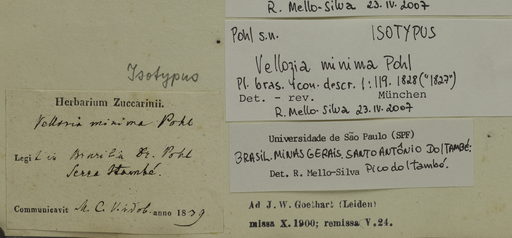 R. Mello-Silva 23.IV.2007
Pohl s.n. ISOTYPUS
Vellozia minima Pohl
Pl. bras. icon. descr. 1:119. 1828 ("1827")
Det. - rev. München
R. Mello-Silva 23.IV.2007
Isotypus
Herbarium Zuccarinii.
Vellozia minima Pohl
Legit in Brasilia Dr. Pohl
Serra Itambé.
Communicavit M. C. Vindob. anno 1839
Universidade de São Paulo (SPF)
BRASIL. MINAS GERAIS. SANTO ANTÔNIO DO ITAMBÉ.
Det. R. Mello-Silva Pico do Itambé.
Ad J. W. Goethart (Leiden)
missa X. 1900; remissa V. 24.